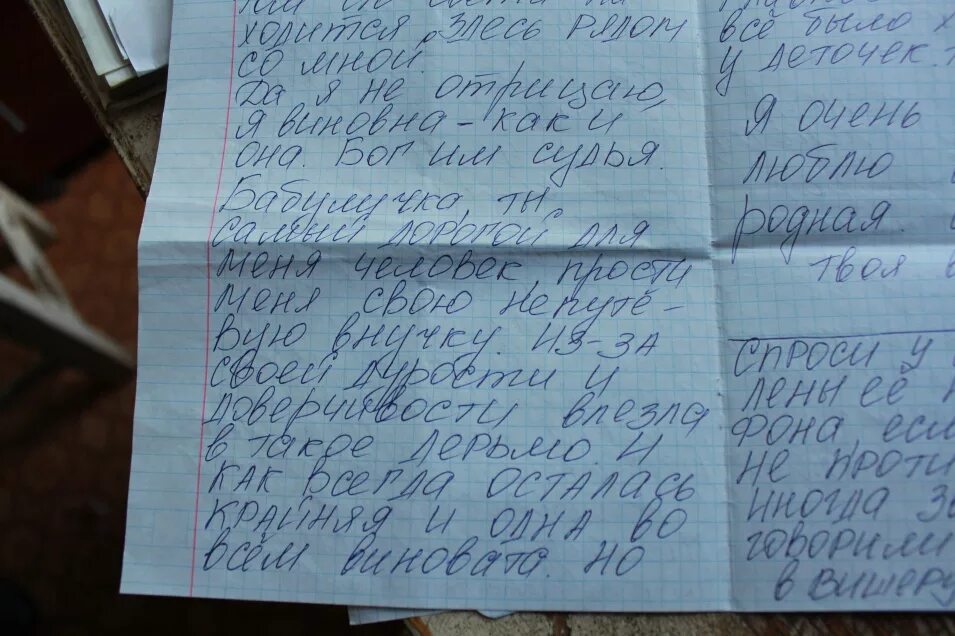 ходится здесь рядом
со мной.
Да я не отрицаю,
я виновна - как и
она. Бог им судья.
Бабуличка, ты
самый дорогой для
меня человек, прости
меня свою непутё-
вую внучку. Из-за
своей дурости и
доверчивости влезла
в такое дерьмо. И
как всегда осталась
крайняя и одна во
всём виновата. Но
всё было
у деточек.
Я очень
люблю
родная.
твоя
Спроси у
лены её
фона, есл
не проти
иногда
говорили
в Вишеру